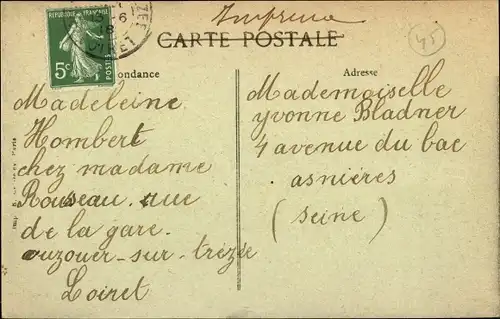 Imprimé
CARTE POSTALE
45
RÉPUBLIQUE FRANÇAISE
5c
POSTES
Adresse
Madeleine
Hombert
chez madame
Rousseau. rue
de la gare.
ouzouer-sur-trézée
Loiret
Mademoiselle
yvonne Bladner
4 avenue du bac
asnières
(seine)